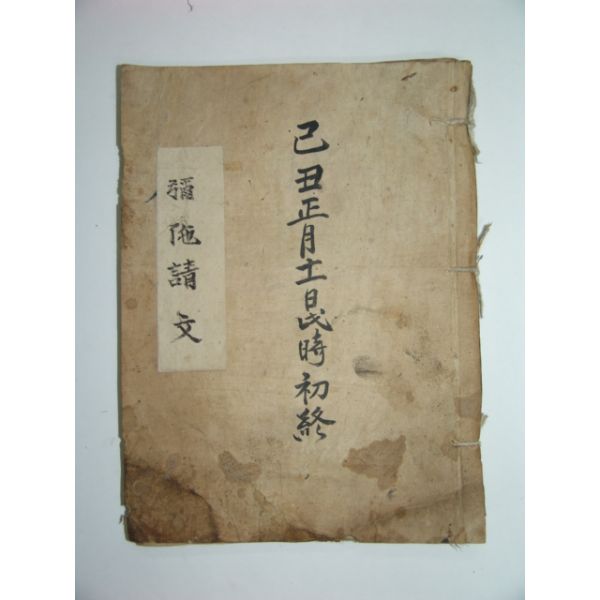 己丑正月十一日時初終
彌陁請文